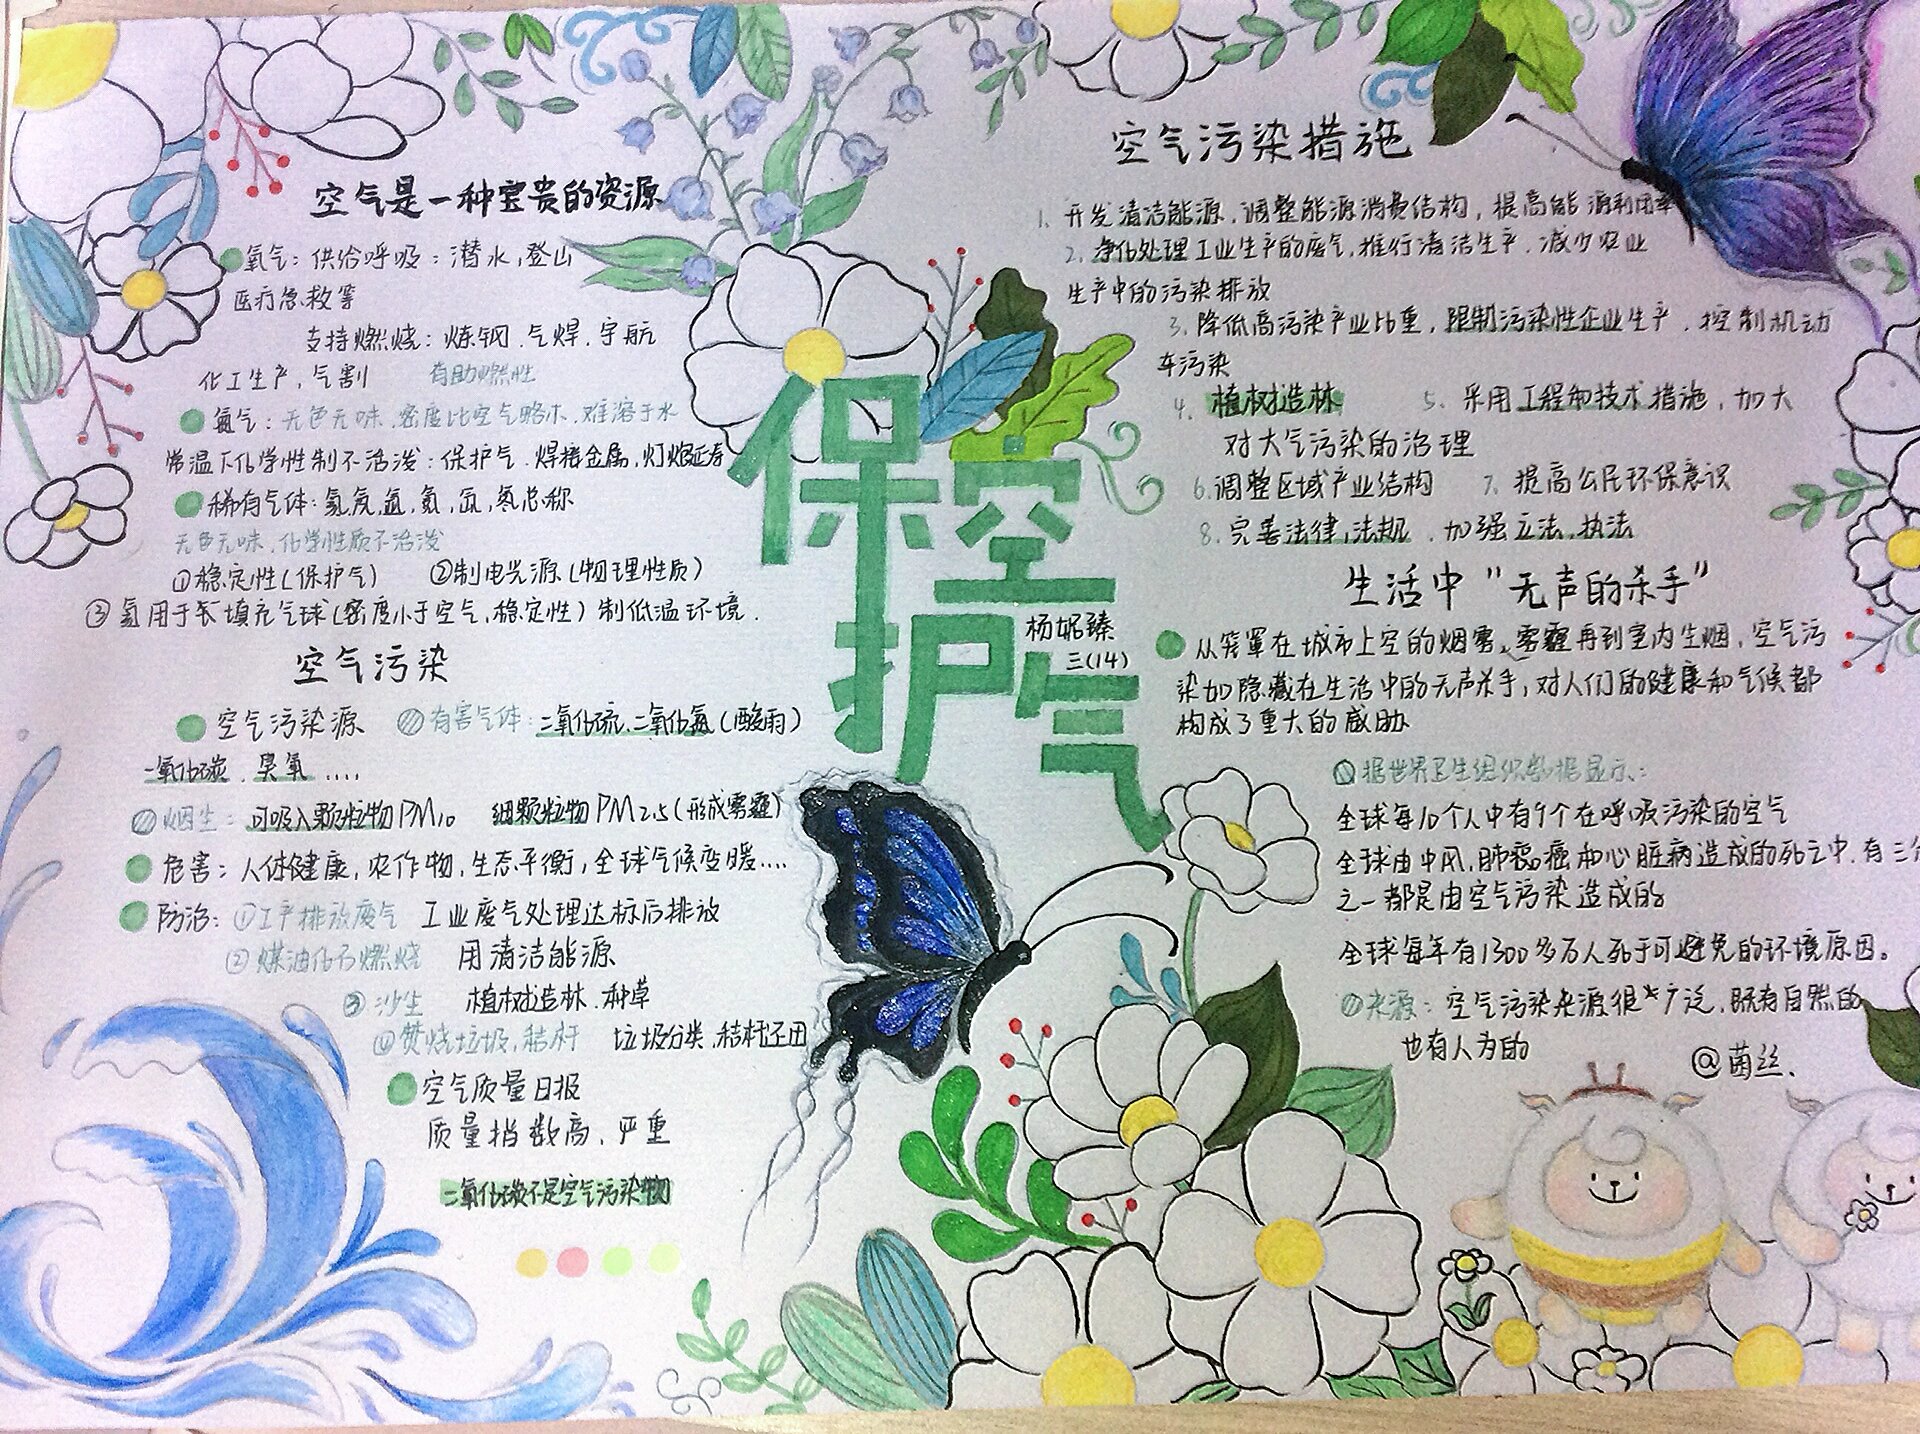 空气是一种宝贵的资源
氧气：供给呼吸：潜水，登山
医疗急救等
支持燃烧：炼钢、气焊、宇航
化工生产，气割 有助燃性
氮气：无色无味、密度比空气略小、难溶于水
常温下化学性制不活泼：保护气、焊接金属，灯炮延寿
稀有气体：氦、氖、氩、氪、氙、氡总称
无色无味、化学性质不活泼
①稳定性（保护气） ②制电光源（物理性质）
③氦用于 填充气球（密度小于空气，稳定性）制低温环境．
空气污染
空气污染源 有害气体：二氧化硫、二氧化氮（酸雨）
一氧化碳、臭氧 ....
烟尘：可吸入颗粒物PM10 细颗粒物PM2.5（形成雾霾）
危害：人体健康，农作物，生态平衡，全球气候变暖....
防治：①工产排放废气 工业废气处理达标后排放
②煤油化石燃烧 用清洁能源
③沙尘 植树造林、种草
④焚烧垃圾，秸秆 垃圾分类、秸秆还田
空气质量日报
质量指数高、严重
二氧化碳不是空气污染物
保护空气
杨妮臻
三(14)
空气污染措施
1. 开发清洁能源，调整能源消费结构，提高能源利用率
2. 净化处理工业生产的废气，推行清洁生产，减少农业
生产中的污染排放
3. 降低高污染产业比重，限制污染性企业生产，控制机动
车污染
4. 植树造林 5. 采用工程和技术措施，加大
对大气污染的治理
6. 调整区域产业结构 7. 提高公民环保意识
8. 完善法律，法规、加强立法，执法
生活中"无声的杀手"
从笼罩在城市上空的烟雾、雾霾再到室内生烟，空气污
染如隐藏在生活中的无声杀手，对人们的健康和气候都
构成了重大的威胁
据世界卫生组织数据显示：
全球每10个人中有9个在呼吸污染的空气
全球由中风，肺 癌和心脏病造成的死亡中，有三分
之一都是由空气污染造成的
全球每年有1300多万人死于可避免的环境原因。
来源：空气污染来源很 广泛，既有自然的
也有人为的
@茵丝、